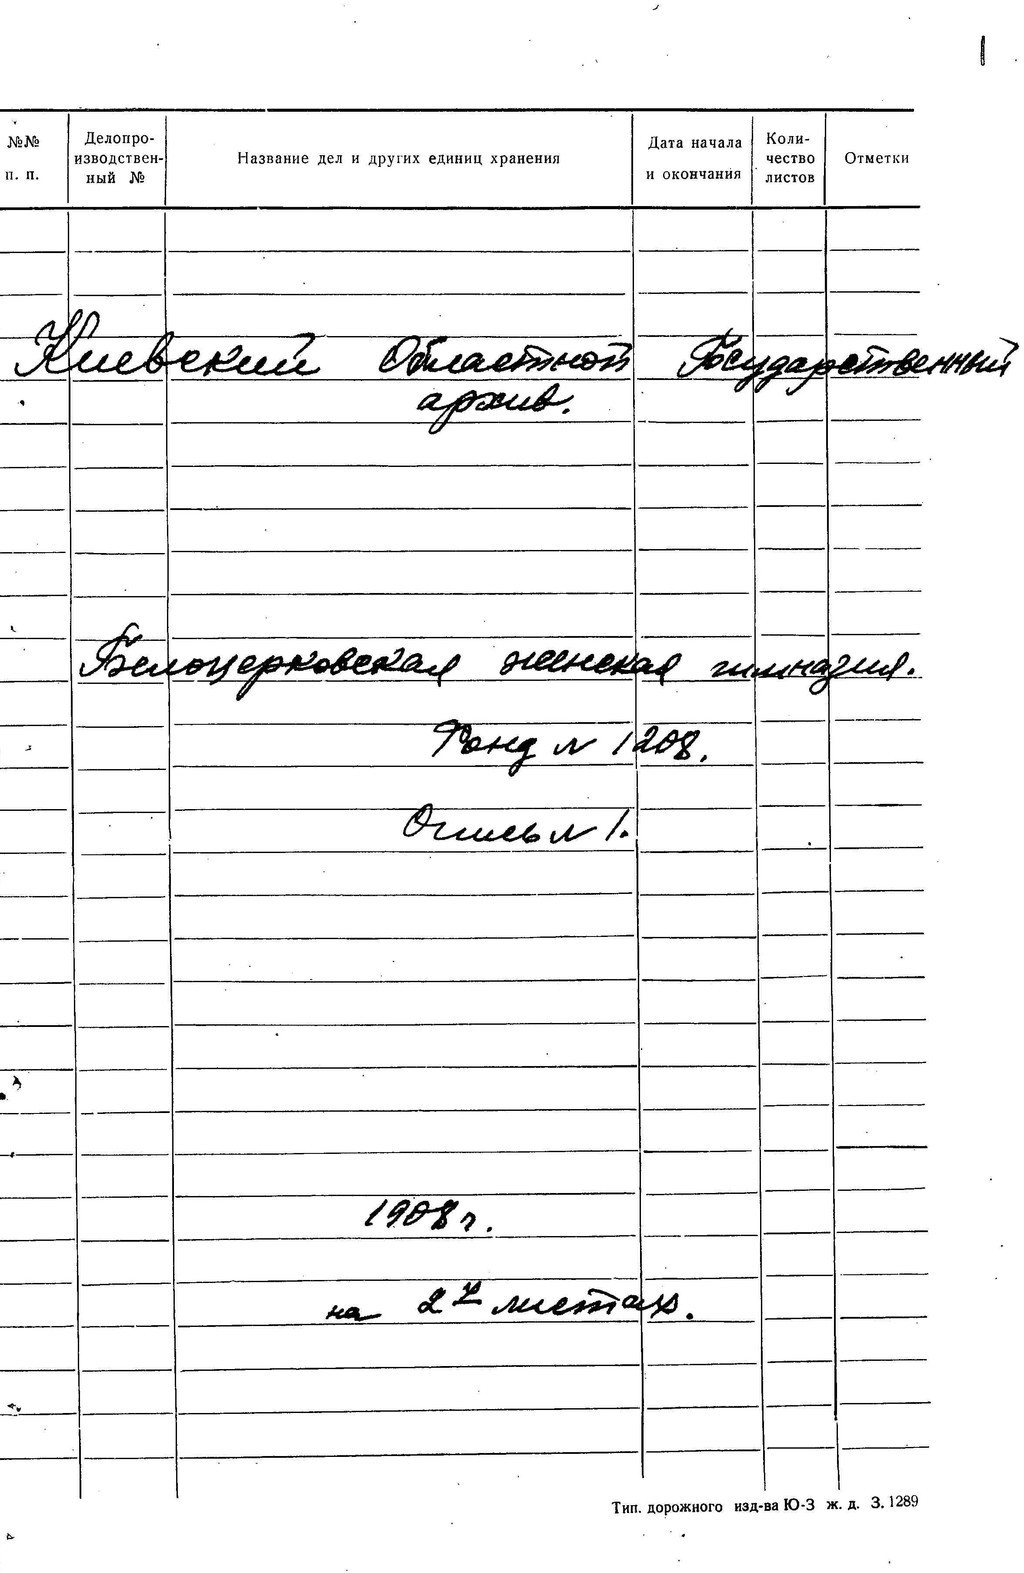 1
№№ п. п.
Делопро-
изводствен-
ный №
Название дел и других единиц хранения
Дата начала
и окончания
Коли-
чество
листов
Отметки
Киевский Областной Государственный
архив.
Белоцерковская женская гимназия.
Фонд № 1208.
Опись № 1.
1908 г.
на 2х листах.
Тип. дорожного изд-ва Ю-З ж. д. З. 1289